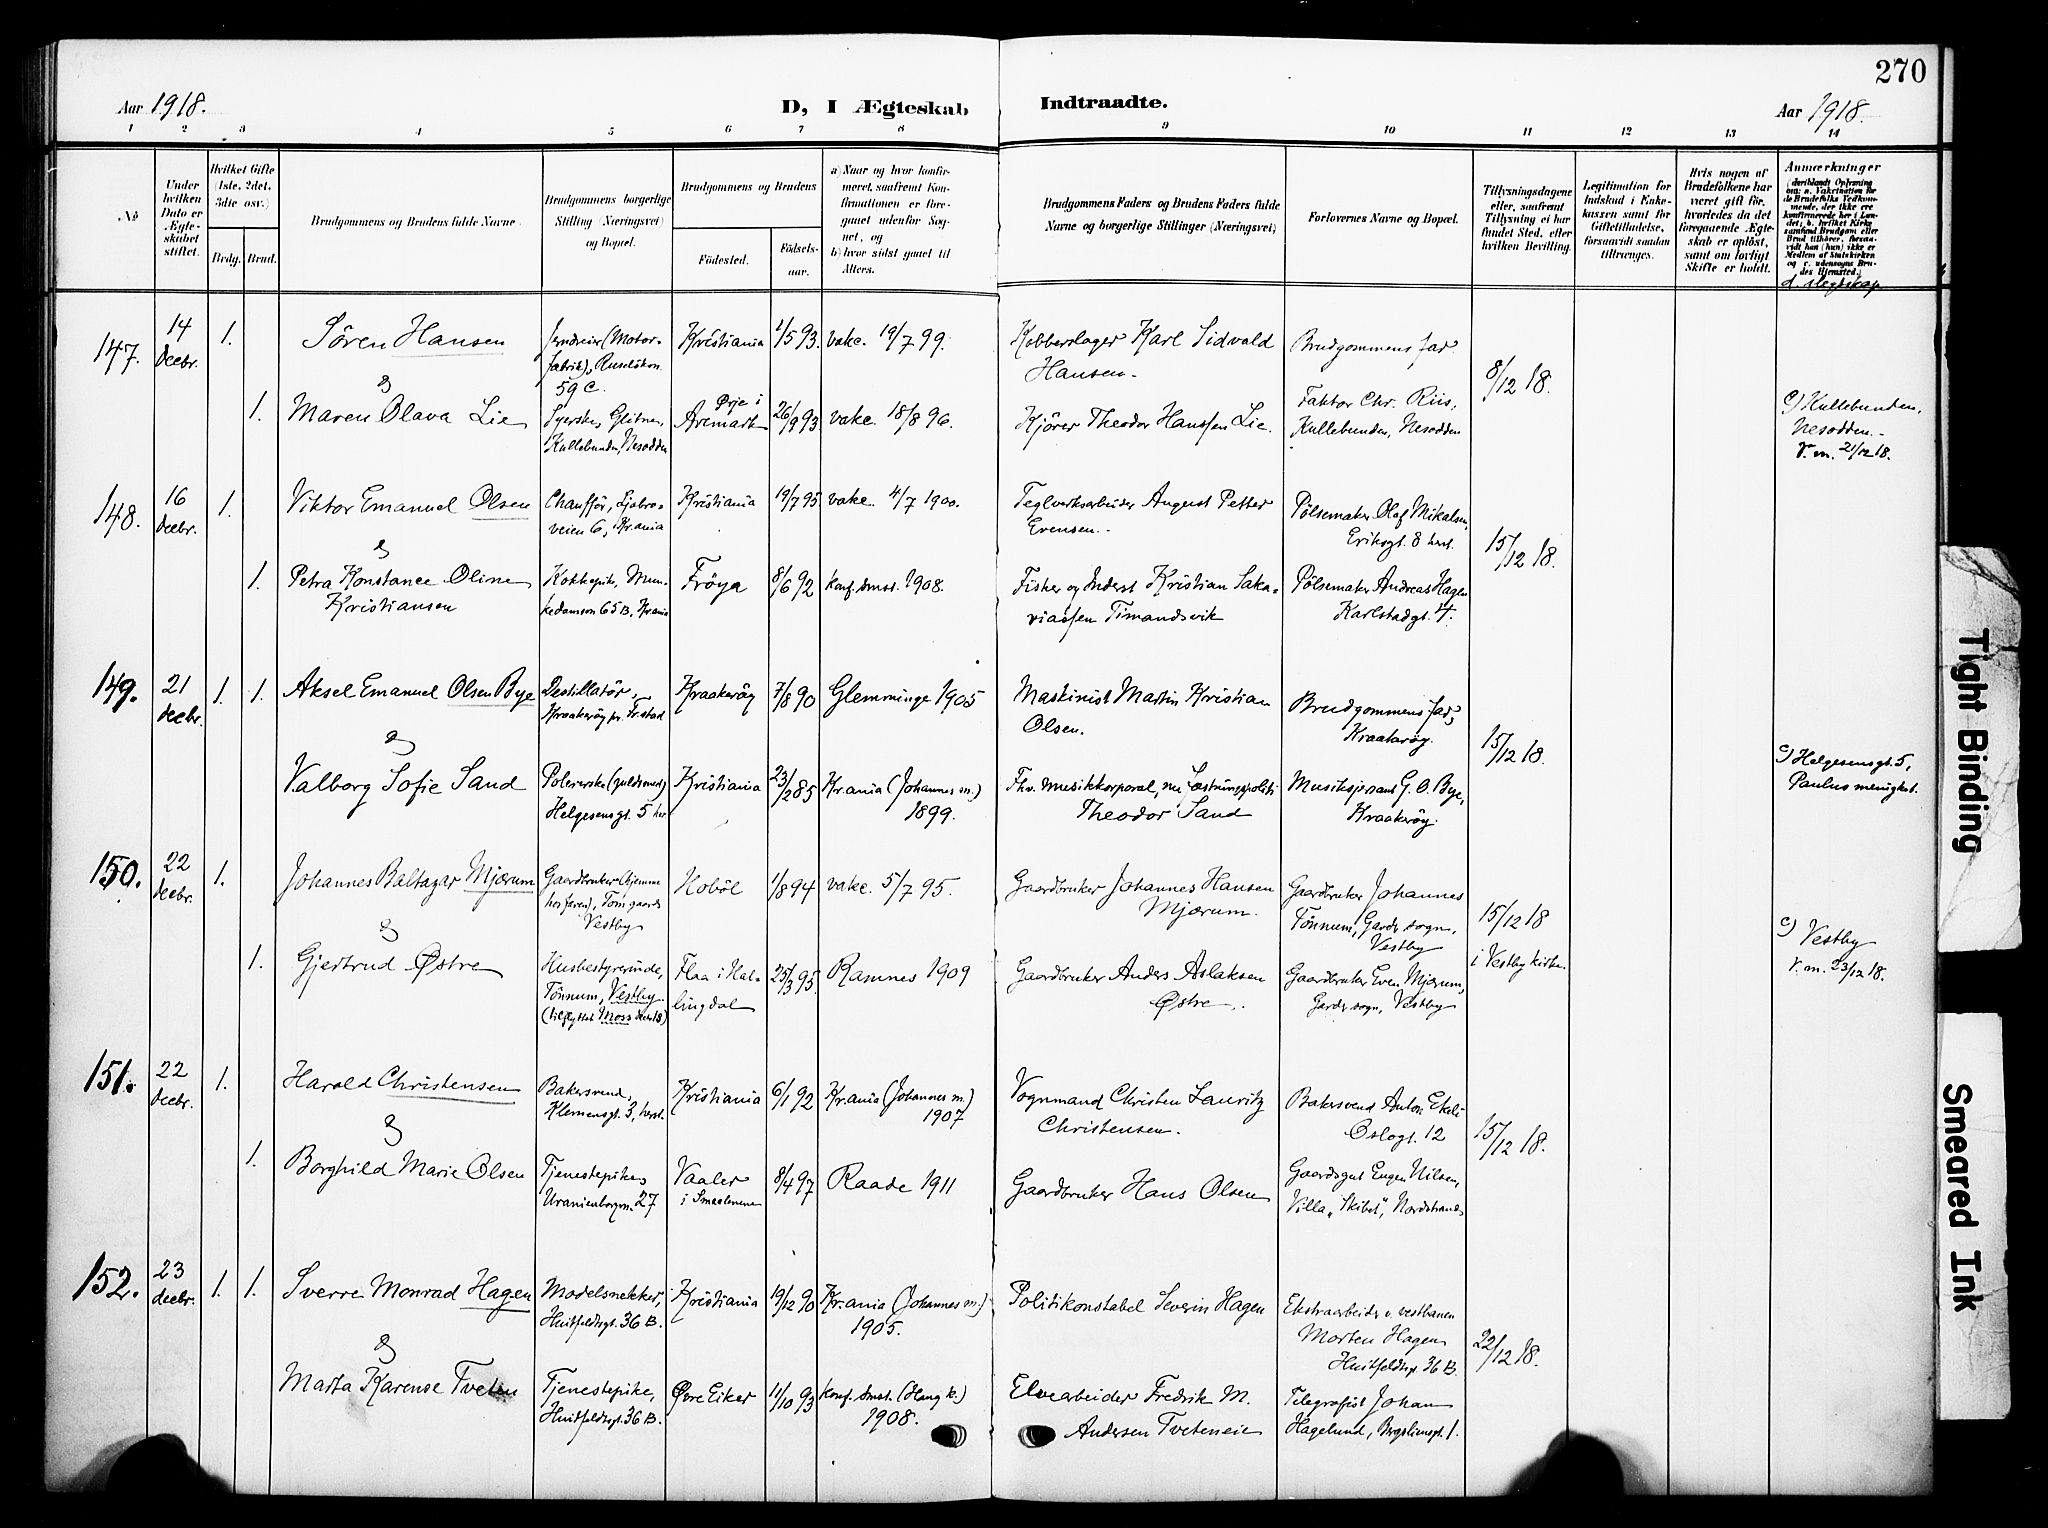 270
Aar 1918.
D, I Ægteskab Indtraadte.
Aar 1918.
1 2 3 4 5 6 7 8 9 10 11 12 13 14
No
Under hvilken Dato er Ægteskabet stiftet.
Hvilket Gifte (1ste, 2det, 3die osv.)
Brdg. Brud.
Brudgommens og Brudens fulde Navne.
Brudgommens borgerlige Stilling (Næringsvei) og Bopæl.
Brudgommens og Brudens
Födested.
Födsels-aar.
a) Naar og hvor konfirmeret, saafremt Konfirmationen er foregaaet udenfor Sognet, og
b) hvor sidst gaaet til Alters.
Brudgommens Faders og Brudens Faders fulde Navne og borgerlige Stillinger (Næringsvei)
Forlovernes Navne og Bopæl.
Tillysningsdagene eller, saafremt Tillysning ei har fundet Sted, efter hvilken Bevilling.
Legitimation for Indskud i Enkekassen samt for Giftetilladelse, forsaavidt saadan tiltrænges.
Hvis nogen af Brudefolkene har været gift för, hvorledes da det foregaaende Ægteskab er oplöst, samt om lovligt Skifte er holdt.
Anmærkninger
d. slegtskap
147.
14 decbr.
1.
Sören Hansen
(Motorfabrik),
59 C.
Kristiania
1/5 93.
vakc. 19/7 99.
Kobberslager Karl Sidvald Hansen.
Brudgommens far
8/12 18.
&
1.
Maren Olava Lie
Syerske, Glitne, Kullebunden, Nesodden
Ørje i Aremark
26/9 93
vakc. 18/8 96.
Kjörer Theodor Hanssen Lie.
Faktor Chr. Riis, Kullebunden, Nesodden
c) Kullebunden, Nesodden.
V. m. 21/12 18.
148.
16 decbr.
1.
Viktor Emanuel Olsen
Chauffør, Ljabroveien 6, Kr.ania
Kristiania
19/7 95
vakc. 4/7 1900.
Teglverksarbeider August Petter Evensen.
Pölsemaker Olaf Mikalsen, Eriksgt. 8 herst.
15/12 18.
&
1.
Petra Konstance Oline Kristiansen
Kokkepike, Munkedamsvn 65 B, Kr.ania
Fröya
8/6 92
konf. dmst. 1908.
Fisker og Inderst Kristian Sakariassen Timandsvik
Pölsemaker Andreas Hagen Karlstadgt. 4.
149.
21 decbr.
1. 1.
Aksel Emanuel Olsen Bye
Destillatör, Kraakeröy pr. Fr.stad
Kraakeröy
7/8 90
Glemminge 1905
Maskinist Martin Kristian Olsen.
Brudgommens far, Kraakeröy.
15/12 18.
&
Valborg Sofie Sand
Polererske (guldsmed) Helgesensgt. 5 her
Kristiania
23/2 85
Kr.ania (Johannes m.) 1899.
Fhv. musikkorporal, nu Theodor Sand
Musiksjersant G. O. Bye, Kraakeröy.
c) Helgesensgt. 5, Paulus menighet.
150.
22 decbr.
1.
Johannes Baltazar Mjærum
Gaardbruker (hjemme hos faren), Tomgaard Vestby
Hoböl
1/8 94
vakc. 5/7 95.
Gaardbruker Johannes Hansen Mjærum.
Gaardbruker Johannes Tönnum, Garder sogn, Vestby
15/12 18
i Vestby kirke.
&
1.
Gjertrud Østre
Husbestyrerinde, Tönnum, Vestby (tilflyttet Moss
Flaa i Hallingdal
25/3 95.
Ramnes 1909
Gaardbruker Anders Aslaksen Østre.
Gaardbruker Even Mjærum, Garder sogn, Vestby
c) Vestby
V. m. 23/12 18.
151.
22 decbr.
1.
Harald Christensen
Bakersvend, Klemensgt. 3, herst.
Kristiania
6/1 92
Kr.ania (Johannes m.) 1907
Vognmand Christen Lauritz Christensen.
Bakersvend Anton Ekeli Oslogt. 12
15/12 18.
&
1.
Borghild Marie Olsen
Tjenestepike, Uranienborgvn. 27
Vaaler i Smaalenene
8/4 97
Raade 1911
Gaardbruker Hans Olsen
Gaardsgut Eugen Nilsen, Villa "Skibet", Nordstrand
152.
23 decbr.
1. 1.
Sverre Monrad Hagen
Modelsnekker, Huitfeldtsgt. 36 B.
Kristiania
19/12 90
Kr.ania (Johannes m.) 1905.
Politikonstabel Severin Hagen
Ekstraarbeider v. vestbanen Morten Hagen Huitfeldtsgt 36 B.
22/12 18.
&
Marta Karense Tveten
Tjenestepike, Huitfeldtsgt. 36 B.
Øvre Eiker
11/10 93
konf. dmst. (Haug k.) 1908.
Elvearbeider Fredrik M. Andersen Tveteneie
Telegrafist Johan Hagelund, Bergsliensgt. 1.
Tight Binding
Smeared Ink